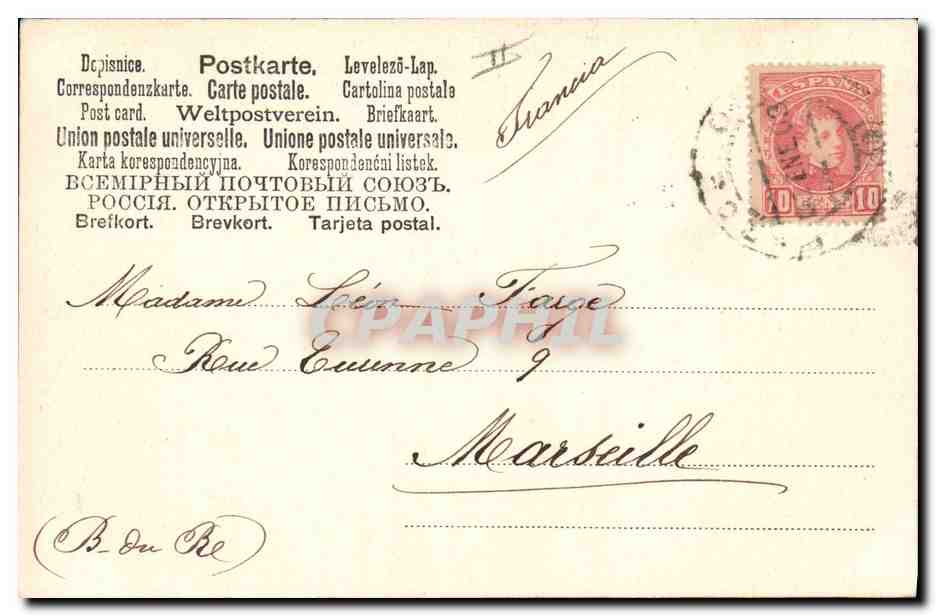 Dopisnice. Postkarte. Levelező-Lap.
Correspondenzkarte. Carte postale. Cartolina postale
Post card. Weltpostverein. Briefkaart.
Union postale universelle. Unione postale universale.
Karta korespondencyjna. Korespondenční listek.
ВСЕМІРНЫЙ ПОЧТОВЫЙ СОЮЗЪ.
РОССІЯ. ОТКРЫТОЕ ПИСЬМО.
Brefkort. Brevkort. Tarjeta postal.
II
Francia
ESPAÑA
10 10
Madame Léon
CPAPHIL
Rue 9
Marseille
(B- du Re)